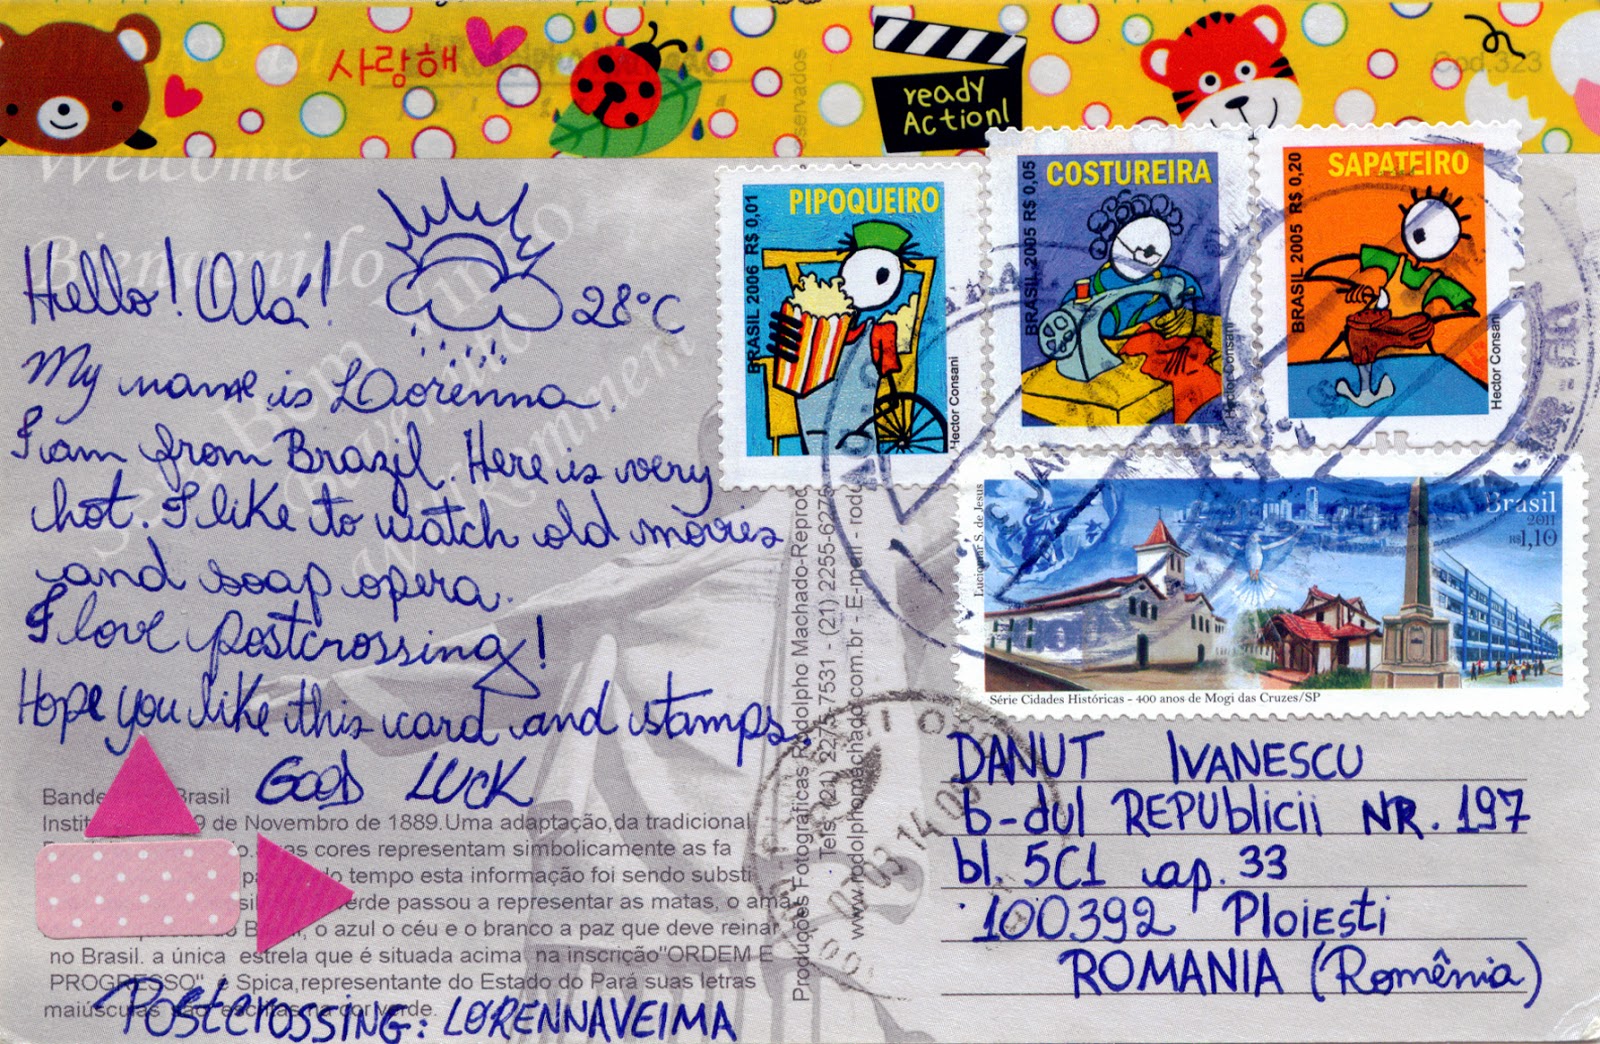 사랑해
ready
Action!
Cod.323
Welcome
Bienvenido
Hello! Olá!
28°C
My name is Lorenna.
I am from Brazil. Here is very
hot. I like to watch old movies
and soap opera.
I love postcrossing!
Hope you like this card and stamps.
GOOD LUCK
Brasil
9 de Novembro de 1889.Uma adaptação,da tradicional
cores representam simbolicamente as fa
do tempo esta informação foi sendo substi
verde passou a representar as matas, o ama
o azul o céu e o branco a paz que deve reinar
no Brasil. a única estrela que é situada acima na inscrição"ORDEM E
PROGRESSO" é Spica,representante do Estado do Pará suas letras
maiúsculas são escritas na cor verde.
POSTCROSSING: LORENNAVEIMA
Produções Fotográficas Rodolpho Machado-Reprod
servados
Tels. (21) 2275-7531 - (21) 2255-6275
www.rodolphomachado.com.br - E-mail - rodo
PIPOQUEIRO
BRASIL 2006 R$ 0,01
Hector Consani
COSTUREIRA
BRASIL 2005 R$ 0,05
Hector Consani
SAPATEIRO
BRASIL 2005 R$ 0,20
Hector Consani
Brasil
2011
R$1,10
Luciomar S. de Jesus
Série Cidades Históricas - 400 anos de Mogi das Cruzes/SP
DANUT IVANESCU
b-dul REPUBLICII NR. 197
bl. 5C1 ap. 33
100392 PloiEsti
ROMANIA (Romênia)